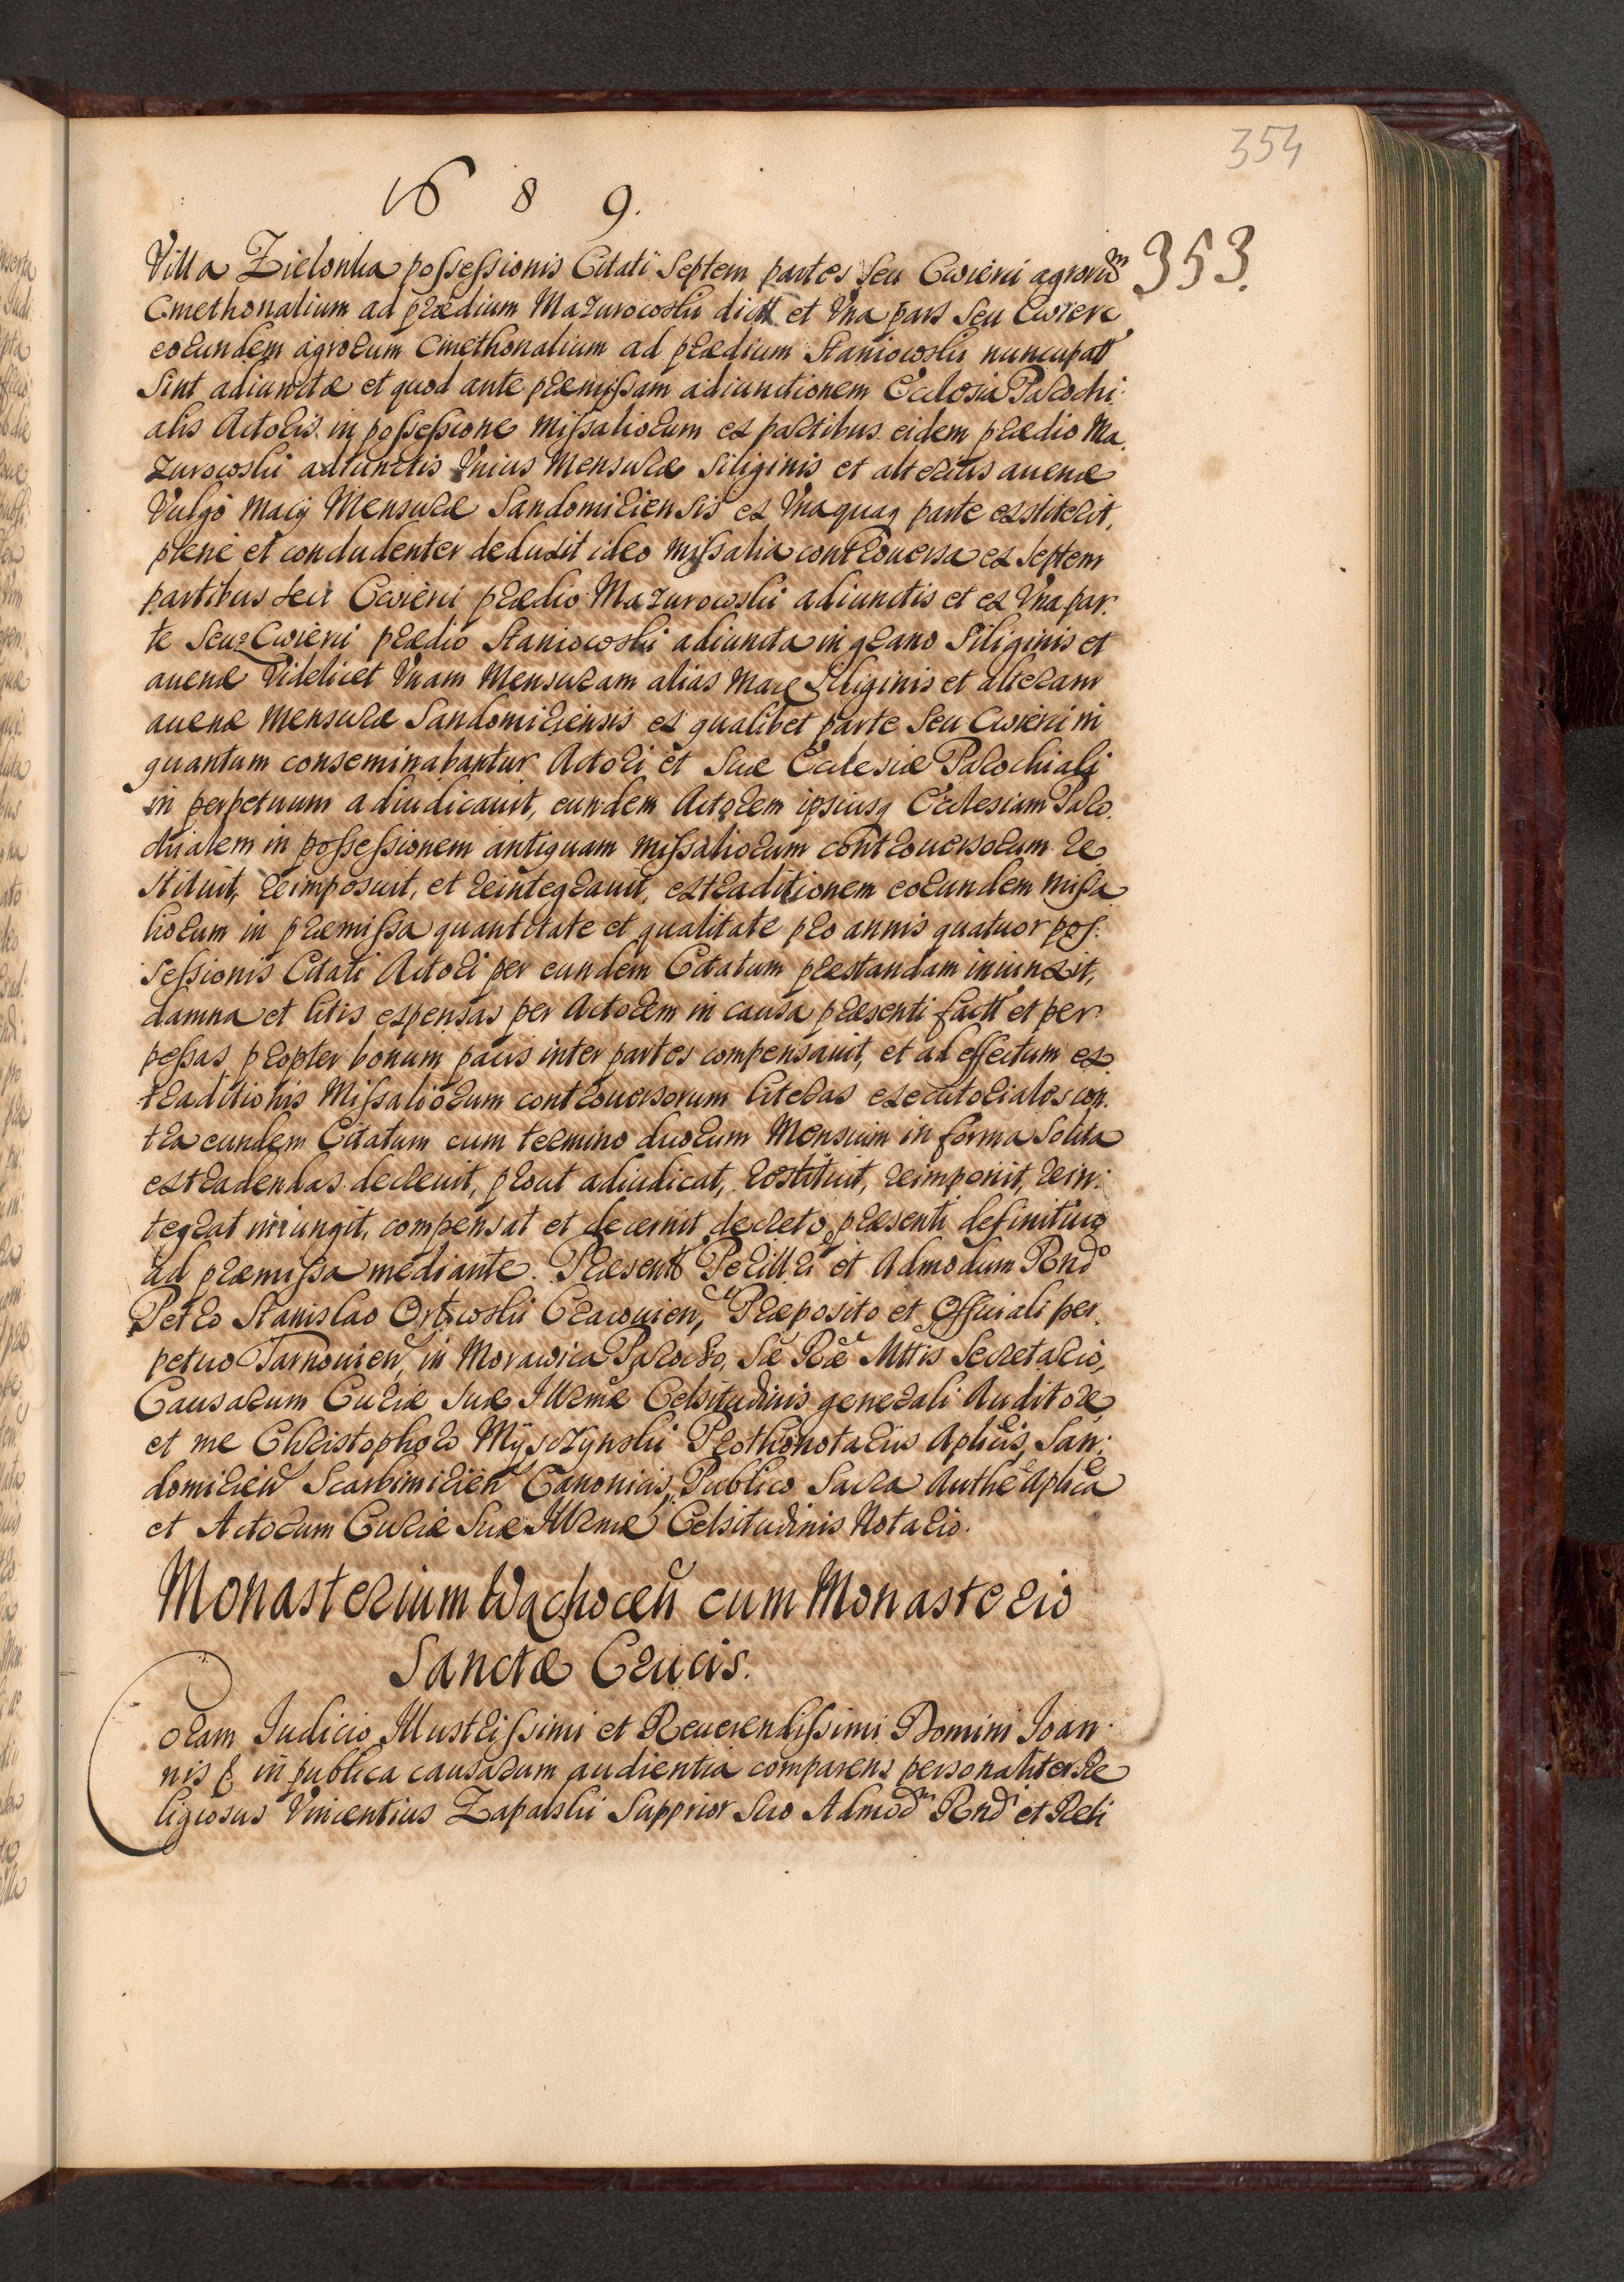 354
1689.
353.
Villa Zielonka possessionis Citati Septem partes seu Cwierci agrorum
Cmethonalium ad prædium Mazurowski dictt et Vna pars seu Cwierc
eorundem agrorum Cmethonalium ad prædium Staniowski nuncupatt
Sint adiunctæ et quod ante præmissam adiunctionem Ecclesia Parochi:
alis Actoris in possessione missaliorum ex partibus eidem prædio Ma,
zurowski adiunctis Vnius Mensuræ Siliginis et alterius auenæ
Vulgò Macy Mensuræ Sandomiriensis ex Vnaquaq parte exstiterit,
plenè et concludenter deduxit ideo missalia controuersa ex septem
partibus seu Cwierci prædio Mazurowski adiunctis et ex Vna par:
te seu Cwierci prædio Staniowski adiuncta in grano Siliginis et
auenæ Videlicet Vnam Mensuram alias Mace Siliginis et alteram
auenæ Mensuræ Sandomiriensis ex qualibet parte Seu Cwierci in
quantum conseminabantur Actori et Suæ Ecclesiæ Parochiali
in perpetuum adiudicauit, eundem Actorem ipsiusq Ecclesiam Paro,
chialem in possessionem antiquam missaliorum controuersorum re
stituit, reimposuit, et reintegrauit, extraditionem eorundem missa
liorum in præmissa quantitate et qualitate pro annis quatuor pos:
sessionis Citati Actori per eundem Citatum præstandam iniunxit,
damna et litis expensas per Actorem in causa præsenti factt et per
pessas propter bonum pacis inter partes compensauit, et ad effectum ex
traditionis Missaliorum controuersorum literas executoriales con:
tra eundem Citatum cum termino duorum Mensium in forma solita
extradendas decreuit, prout adiudicat, restituit, reimponit, rein:
tegrat iniungit, compensat et decernit decreto præsenti definitiuo
ad præmissa mediante. Præsentt Perilltri et Admodum Rndo
Petro Stanislao Orłowski Cracouien, Præposito et Officiali per,
petuo Tarnouien, in Morawica Parocho, Sæ Ræ Mttis Secretario,
Causarum Curiæ Suæ Illrmæ Celsitudinis generali Auditore
et me Christophoro Myszczynski Prothonotarius Aplicis, San:
domirien Scarbimirien Canonicis, Publico Sacra Authe Aplica
et Actorum Curiæ Suæ Illrmæ Celsitudinis Notario.
Monasterium Wąchocen cum Monasterio
Sanctæ Crucis.
Coram Iudicio Illustrissimi et Reuerendissimi Domini Ioan:
nis & in publica causarum audientia comparens personaliter Re
ligiosus Vincentius Zapalski Supprior Suo Admodm Rndi et Reli